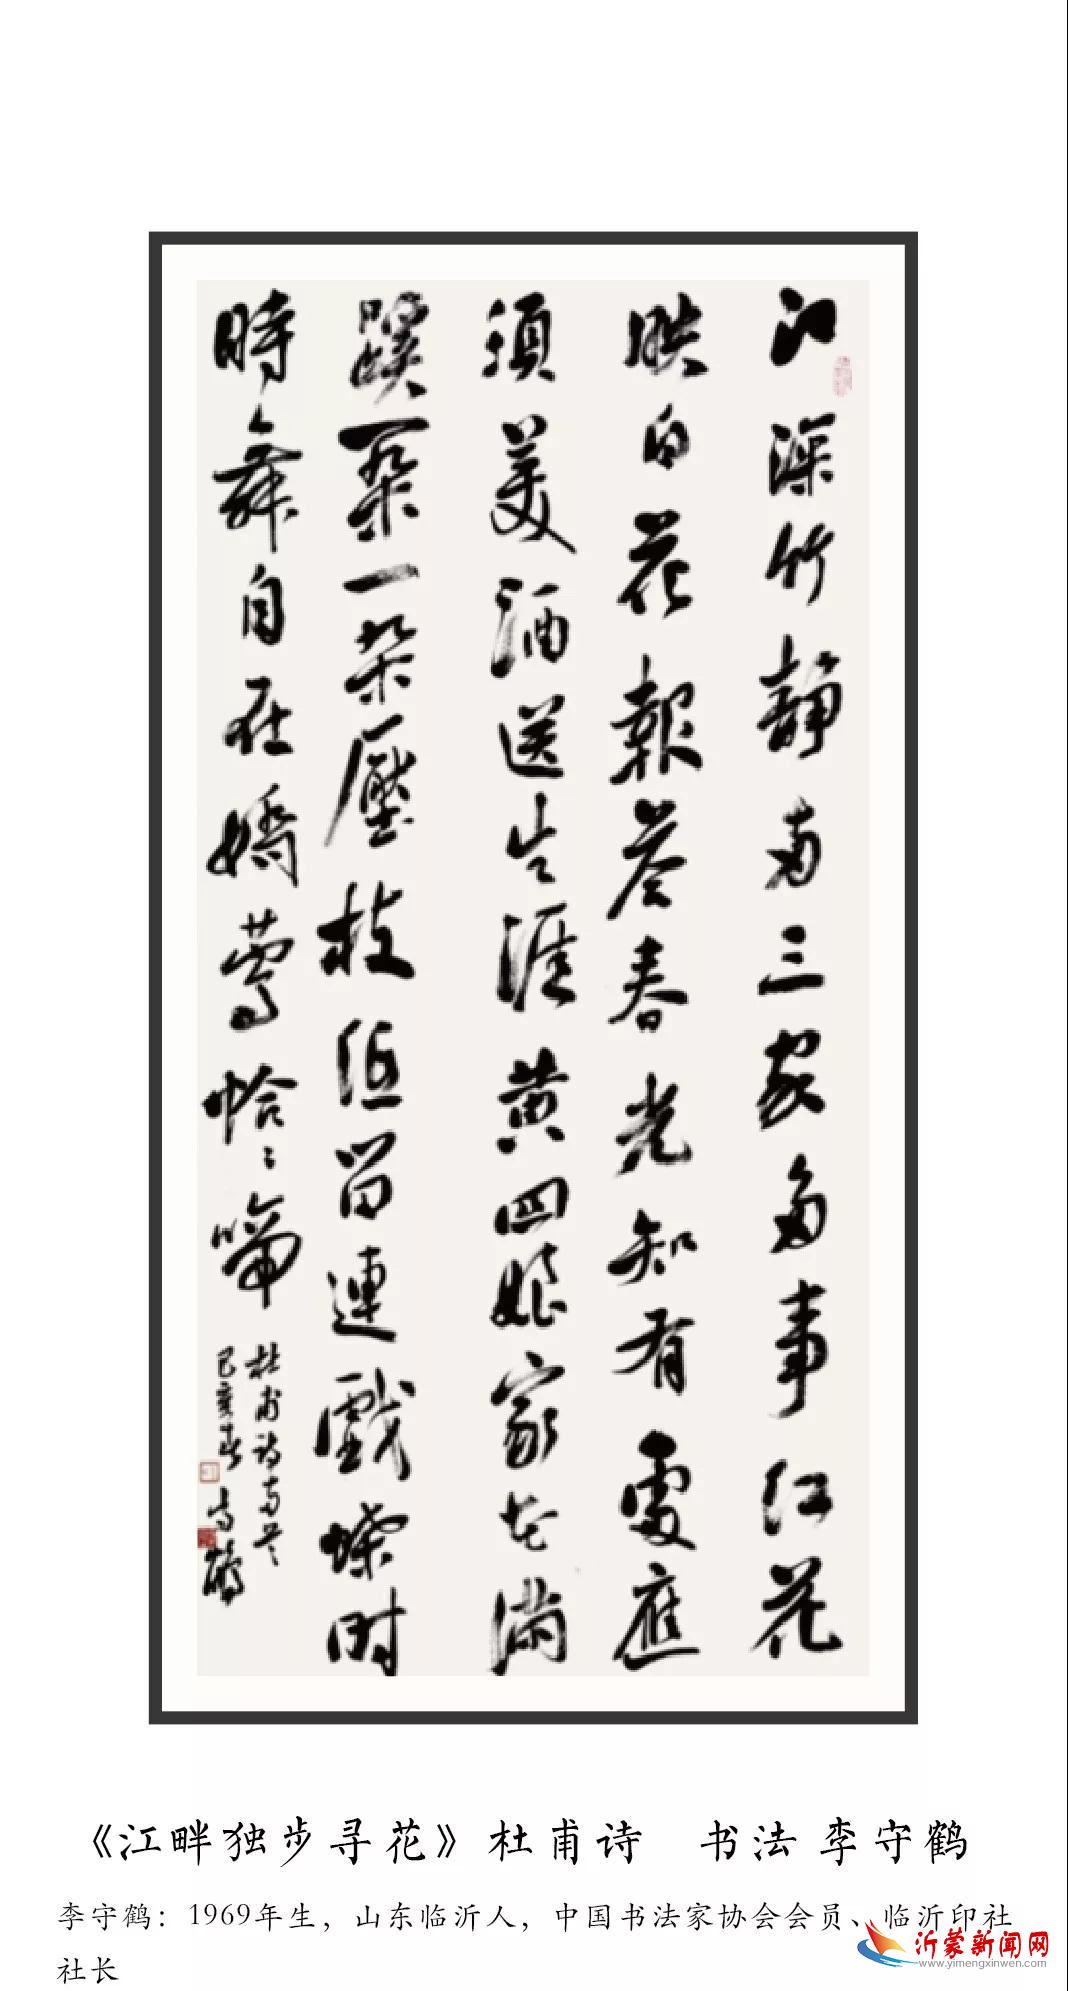 江深竹靜两三家多事红花
映白花報答春光知有處應
須美酒送生涯黄四娘家花满
蹊一朵一朵壓枝低留連戲蝶时
時舞自在嬌鶯恰々啼
杜甫诗两首
己亥春守鶴
《江畔独步寻花》杜甫诗 书法 李守鹤
李守鹤：1969年生，山东临沂人，中国书法家协会会员、临沂印社
社长
沂蒙新闻网
www.yimengxinwen.com